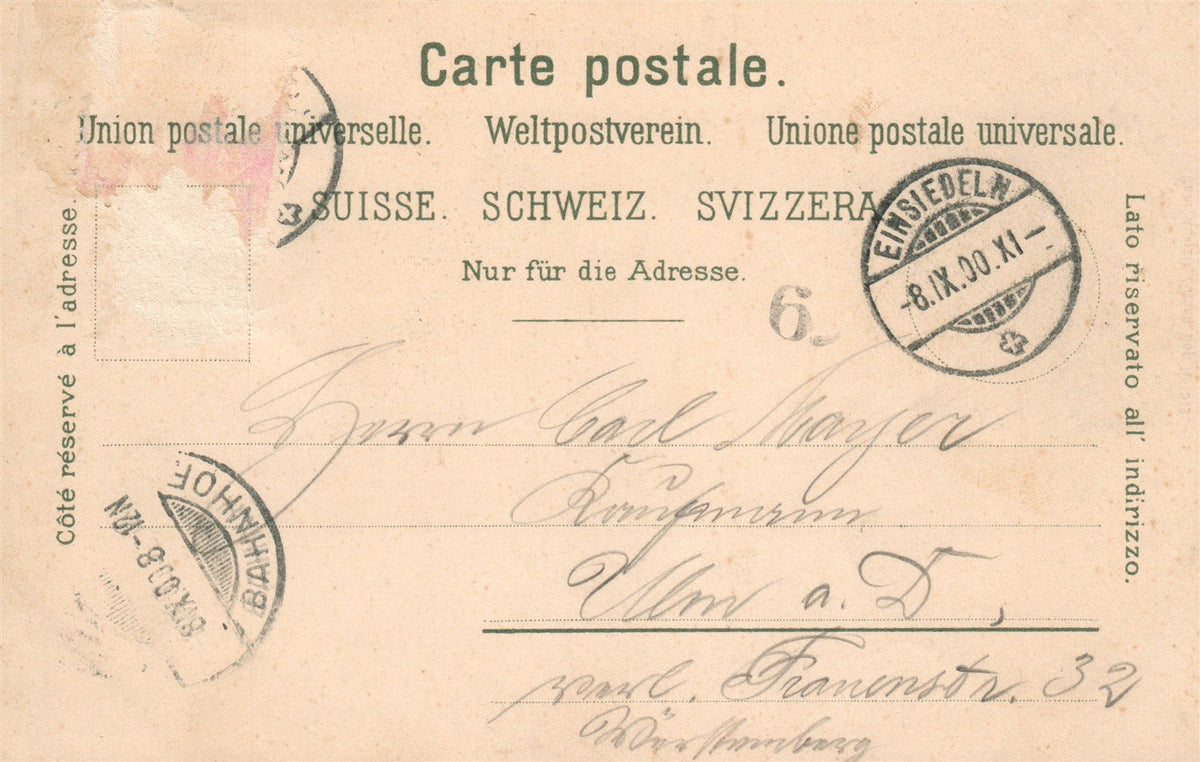 Carte postale.
Union postale universelle. Weltpostverein. Unione postale universale.
SUISSE. SCHWEIZ. SVIZZERA
Nur für die Adresse.
Côté réservé à l'adresse.
Lato riservato all' indirizzo.
EINSIEDELN
-8.IX.00.XI-
6.
Herrn Carl Mayer
Kaufmann
Ulm a. D,
verl. Frauenstr. 32
Württemberg
BAHNHOF.
8-12N